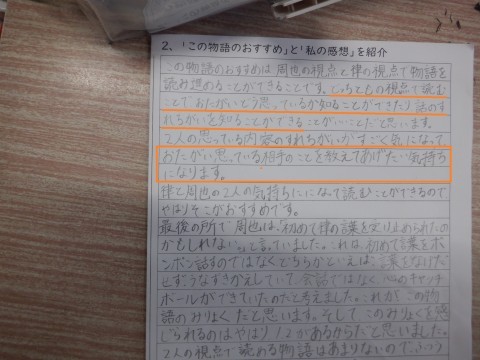 2、「この物語のおすすめ」と「私の感想」を紹介
この物語のおすすめは、周也の視点と律の視点で物語を
読み進めることができることです。じっさいとの視点で読む
ことでおたがいどう思っているか知ることができたり話のす
れちがいを知ることができることがいいことだと思います。
2人の思っている内容のすれちがいがすごく気になって
おたがい思っている相手のことを教えてあげたい気持ち
になります。
律と周也の2人の気持ちになって読むことができるので
やはりそこがおすすめです。
最後の所で周也は、初めて律の言葉を受け止められたの
かもしれない。と言っていました。これは初めて言葉をポ
ンポン話すのではなくどちらかといえば言葉を
せずうなずきかえしていて、会話ではなく心のキャッチ
ボールができていたのだと考えました。これがこの物
語のみりょくだと思います。そしてこのみりょくを感
じられるのはやはり1/2があるからだと思いました。
2人の視点で読める物語はあまりないので